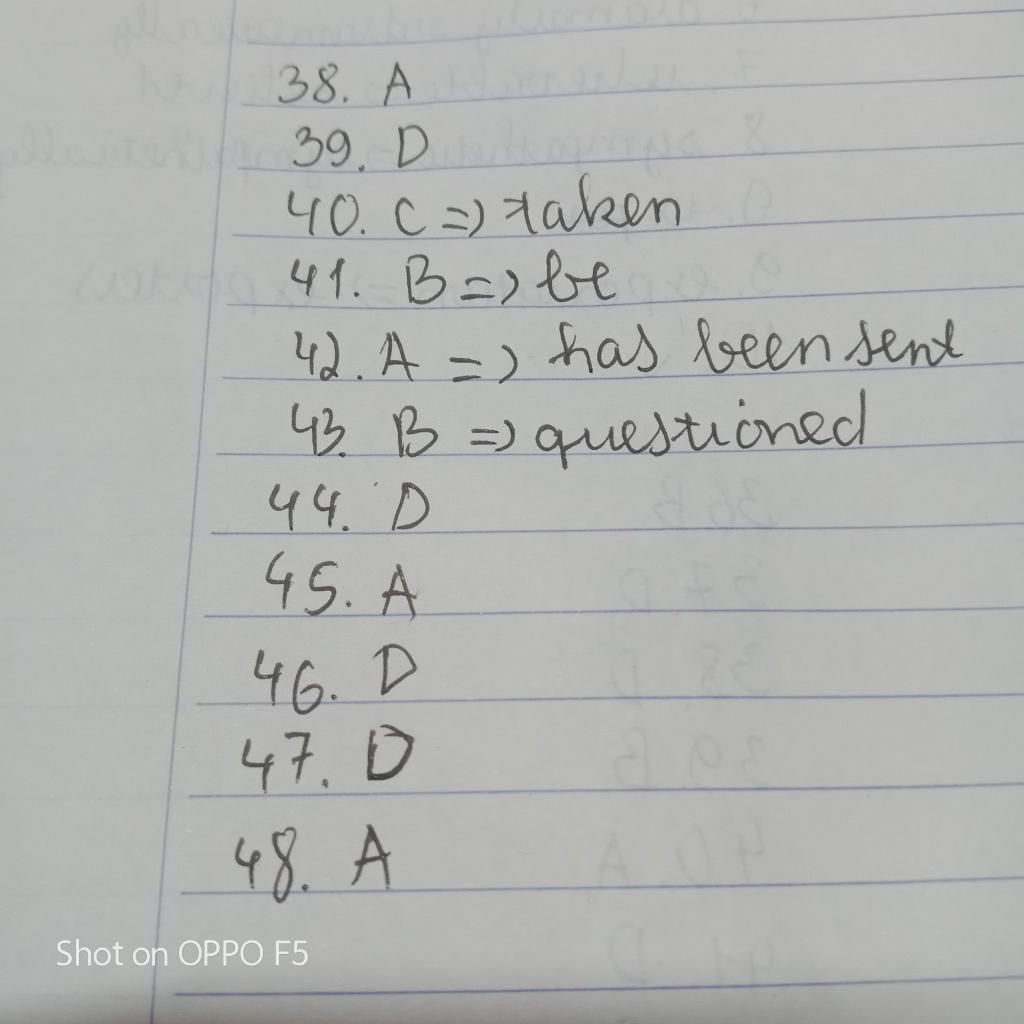 38. A
39. D
40. C => taken
41. B => be
42. A => has been sent
43. B => questioned
44. D
45. A
46. D
47. D
48. A
Shot on OPPO F5